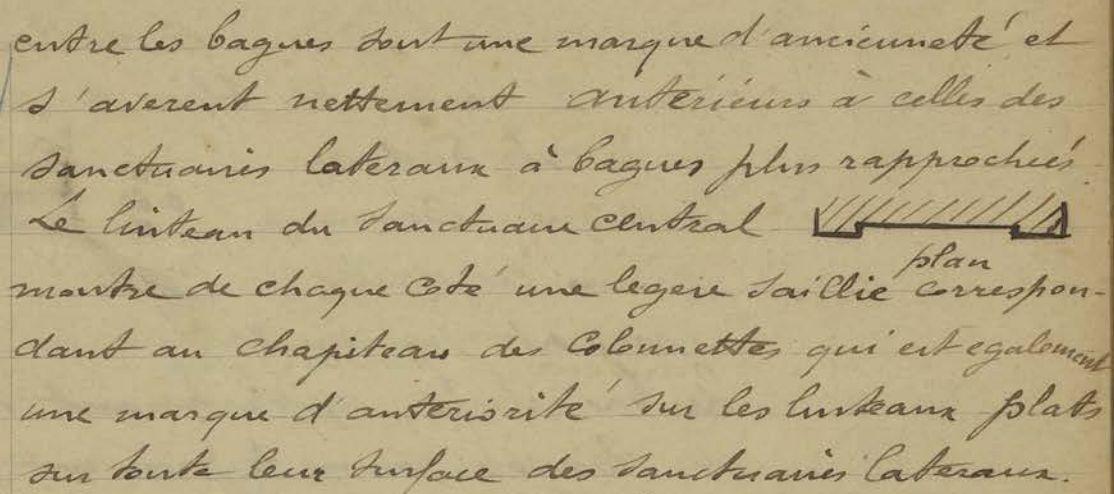 entre les bagues sont une marque d'ancienneté et
s'averent nettement antérieurs à celles des
sanctuaires lateraux à bagues plus rapprochées.
Le linteau du sanctuaire central
plan
montre de chaque coté une legere saillie correspon-
dant au chapiteau des colonnettes qui est egalement
une marque d'antériorité sur les linteaux plats
sur toute leur surface des sanctuaires lateraux.